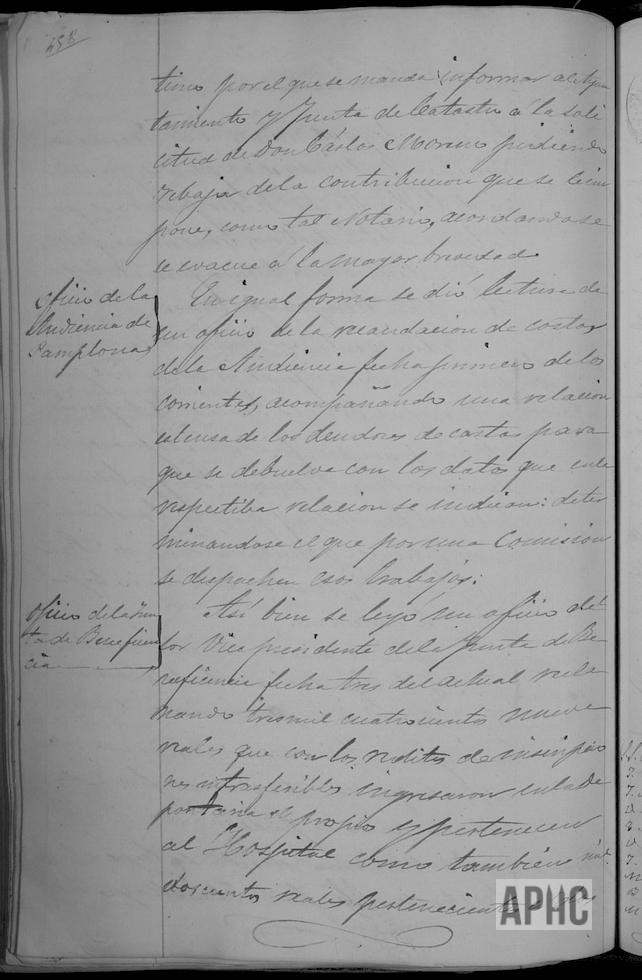 458
timo por el que se manda informar al Ayun
tamiento y Junta de Catastro á la soli
citud de Don Cárlos Moreno pidiendo
rebaja de la contribucion que se le im
pone, como tal Notario, acordandose
se evacue á la mayor brevedad
Oficio de la
Audiencia de
Pamplona
En igual forma se dió lectura de
un oficio de la recaudacion de costas
de la Audiencia fecha primero de los
corrientes, acompañando una relacion
estensa de los deudores de costas para
que se debuelva con los datos que en la
respectiba relacion se indican: deter
minandose el que por una Comision
se despachen esos trabajos:
Oficio de la Jun
ta de Beneficen
cia
Asi bien se leyó un oficio del
Sor Vice presidente de la Junta de Be
neficencia fecha tres del actual recla
mando tres mil cuatrocientos nueve
reales que con los reditos de inscripcio
nes intrasferibles ingresaron en la De
positaria de propios y pertenecen
al Hospital como tambien mil
doscientos reales pertenecientes
APHC